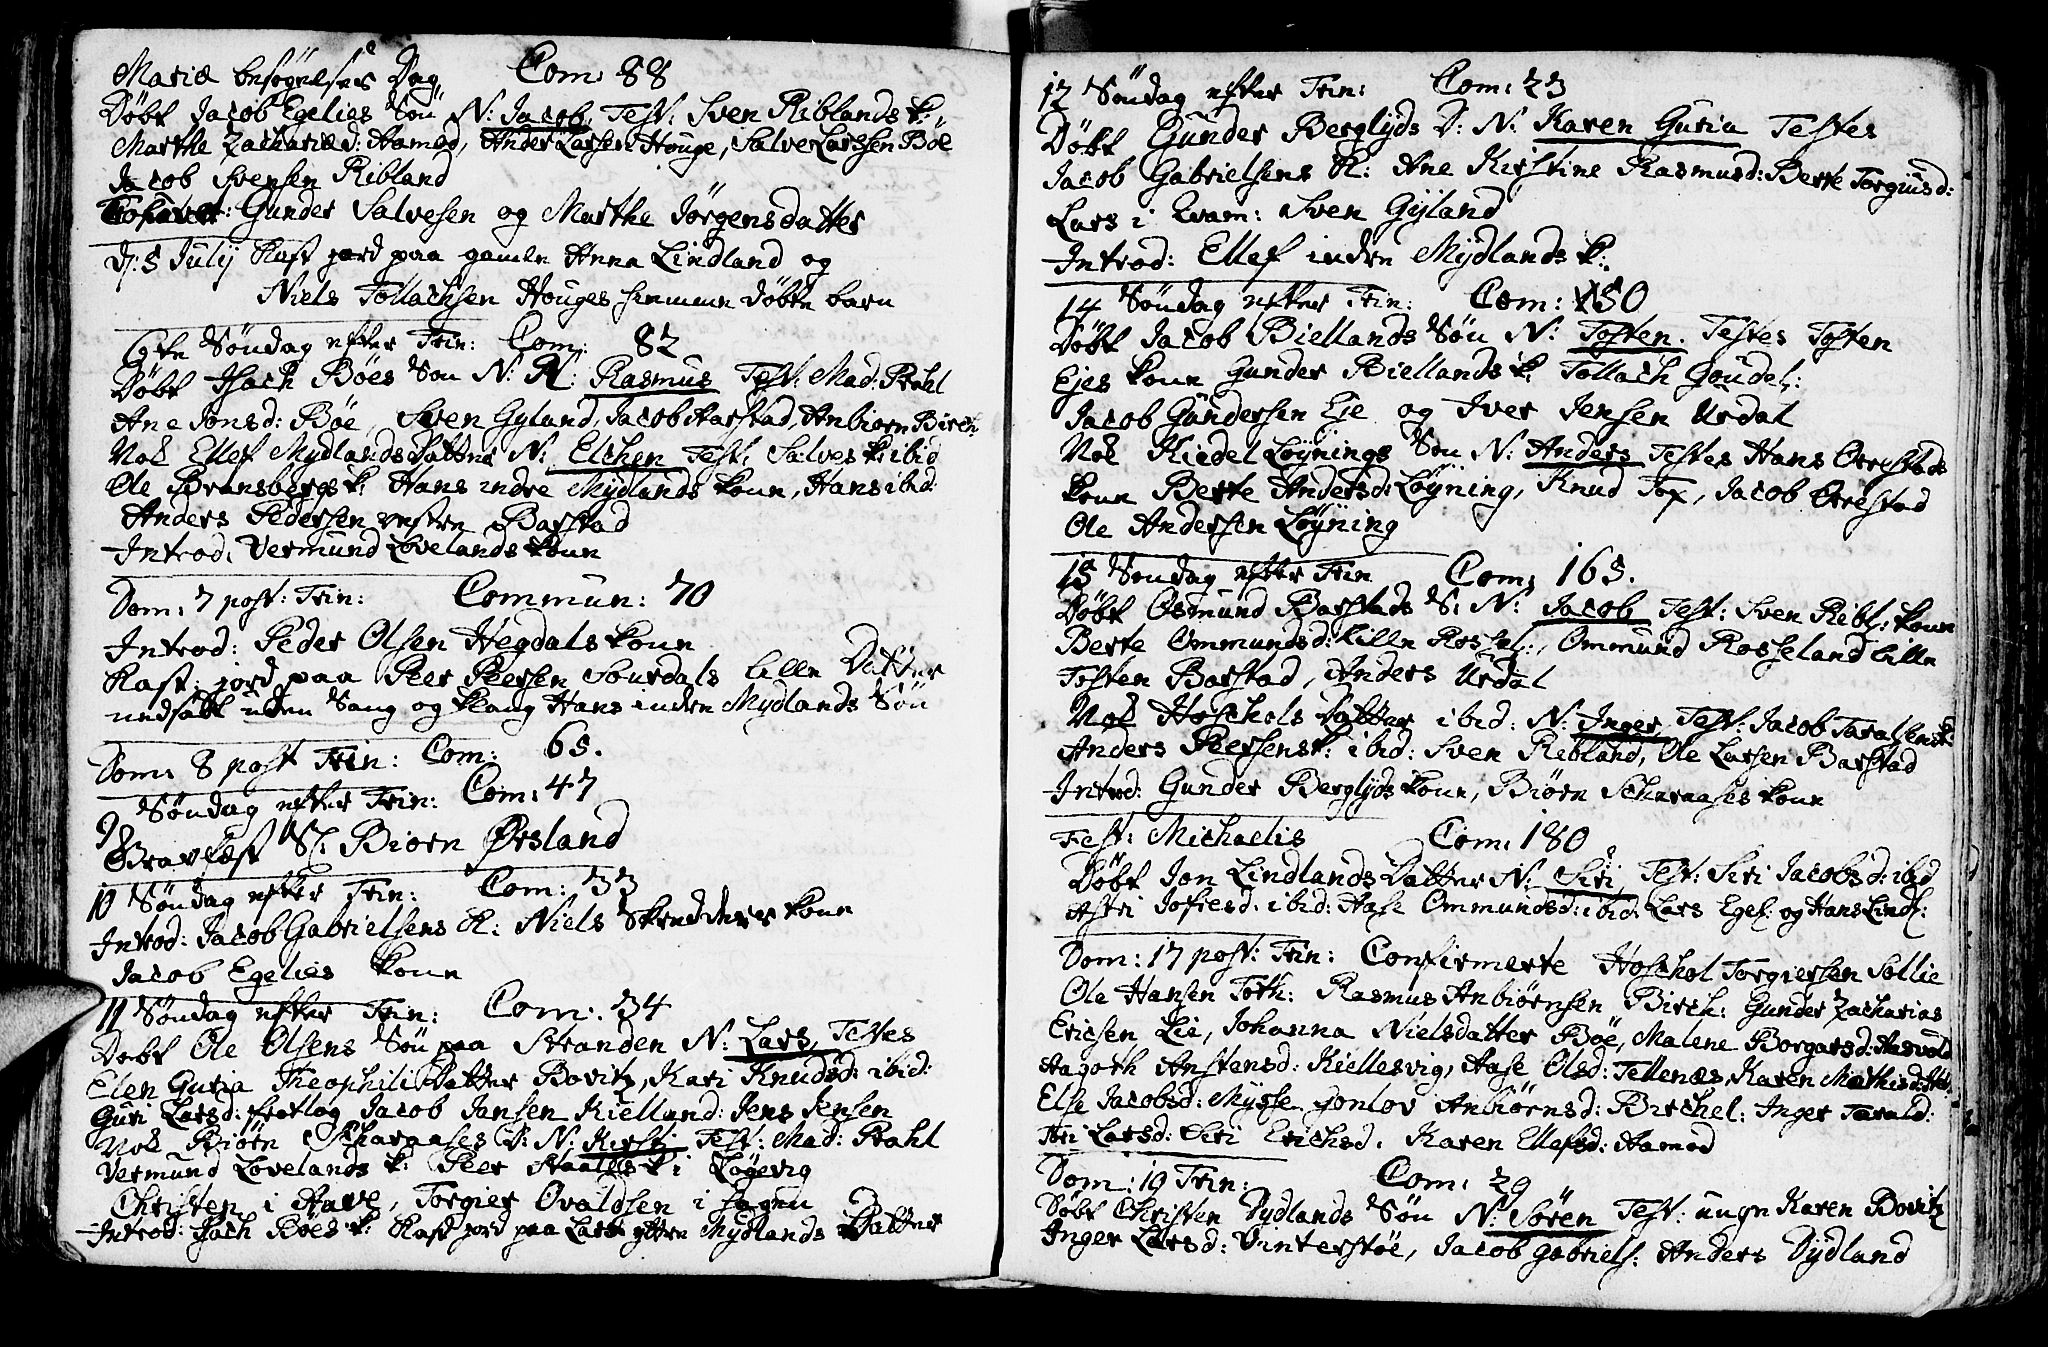 Mariæ besøgelses Dag Com: 88
Døbt Jacob Egelies Søn N: Jacob, Test: Sven Riblands k:
Marthe Zachariæd: Aamod, Ander Larsen Houge, Salve Larssen Böe
Jacob Svensen Ribland
Gunder Salvesen og Marthe Jørgensdatter
d: 5 Julij Kast jord paa gamle Anna Lindland og
Niels Tollachsen Houges hiemme døbte barn
6te Søndag efter Trin: Com: 82
Døbt Isach Böes Søn N: Rasmus Test: Mad: Stahl
Ane Jonsd: Böe, Sven Gyland, Jacob Aarstad, Anbiørn Birch:
Nok Ellef Mydlands Datter N: Elchen Test: Salves k: ibid
Ole Bransbergs k: Hans indre Mydlands kone, Hans ibid:
Anders Pedersen vestre Barstad
Introd: Vermund Lovelands kone
Dom: 7 post: Trin: Commun: 70
Introd: Peder Olsen Hegdals kone
Kast jord paa Peer Peersen Sourdals lille Datter
nedsatt uden Sang og klang Hans indre Mydlands Søn
Dom: 8 post Trin: Com: 65.
9 Søndag efter Trin: Com: 47
Gravfæst Sl: Biørn Ørsland
10 Søndag efter Trin: Com: 33
Introd: Jacob Gabrielsens K: Niels Skredders kone
Jacob Egelies kone
11 Søndag efter Trin: Com: 34
Døbt Ole Olsens Søn paa Stranden N: Lars, Testes
Elen Guria Theophili Datter Bovitz, Kari Knudsd: ibid:
Guri Larsd: Østlog Jacob Jansen Kielland: Jens Jensen
Nok Biørn Scharaases D: N: Kirsti Test: Mad: Stahl
Vermund Lovelands k: Peer k: i Løgevig
Christen i Aave, Torgier Ovaldsen i
Introd: Isach Böes k: Kast jord paa Lars ytre Mydlands Datter
12 Søndag efter Trin: Com: 23
Døbt Gunder Berglyds D: N: Karen Guria Testes
Jacob Gabrielsens K: Ane Kirstine Rasmusd: Berte Torgiusd:
Lars i Qvam: Sven Gyland
Introd: Ellef indre Mydlands k:
14 Søndag efter Trin: Com: 150
Døbt Jacob Biellands Søn N: Tosten. Testes Tosten
Ejes kone Gunder Biellands k: Tollach Goudel:
Jacob Gundersen Eje og Iver Jensen Urdal
Nok Kiedel Løynings Søn N: Anders Testes Hans Orrestads
kone Berte Andersd: Løyning, Knud Tox, Jacob Orrestad
Ole Andersen Løyning
15 Søndag efter Trin Com: 165.
Døbt Osmund Barstads S: N: Jacob Test: Sven Ribl: kone
Berte Ommundsd: lille Rossel:, Ommund Rosseland lille
Tosten Barstad, Anders Urdal
Nok Hoschols Datter ibid: N: Inger, Test: Jacob Taralsens k:
Anders Peersens k: ibid: Sven Ribland, Ole Larsen Barstad
Introd: Gunder Berglyds kone, Biørn Scharaases kone
Fest: Michaelis Com: 180
Døbt Jon Lindlands Datter N: Siri, Test: Siri Jacobsd: ibid
Astri Jofiesd: ibid: Aase Ommundsd: ibid: Lars Egel: og Hans Lindl:
Dom: 17 post: Trin: Confirmerte Hoschol Torgiersen Sollie
Ole Hansen Toth: Rasmus Anbiørnsen Birch: Gunder Zacharias
Ericsen Lie, Johanna Nielsdatter Böe, Malene Borgarsd: Aasvold
Aagoth Anstensd: Kiellesvig, Aase Olsd: Tellenæs, Karen Mathisd:
Else Jacobsd: Mysse Gonlov Anbiørnsd: Birchel: Inger Tarald:
Siri Larsd: Siri Erichsd. Karen Ellefsd: Aamod
Dom: 19 Trin: Com: 29
Døbt Christen Dydlands Søn N: Søren Test: unge Karen Bovitz
Inger Larsd: Vinterstøe, Jacob Gabriels: Anders Dydland